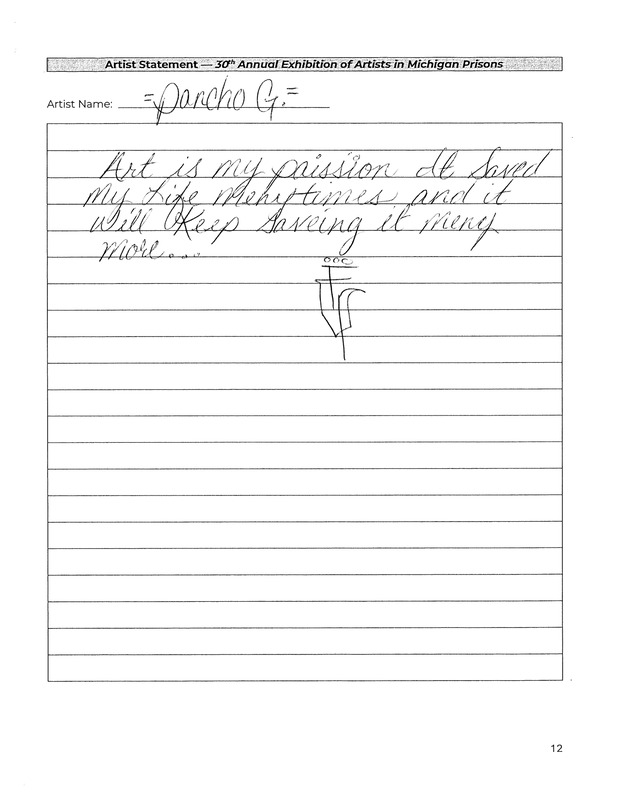 Artist Statement — 30th Annual Exhibition of Artists in Michigan Prisons
Artist Name: =Pancho G.=
Art is my paission It Saved
My Life Menytimes and it
will Keep Saveing it Meny
more...
12